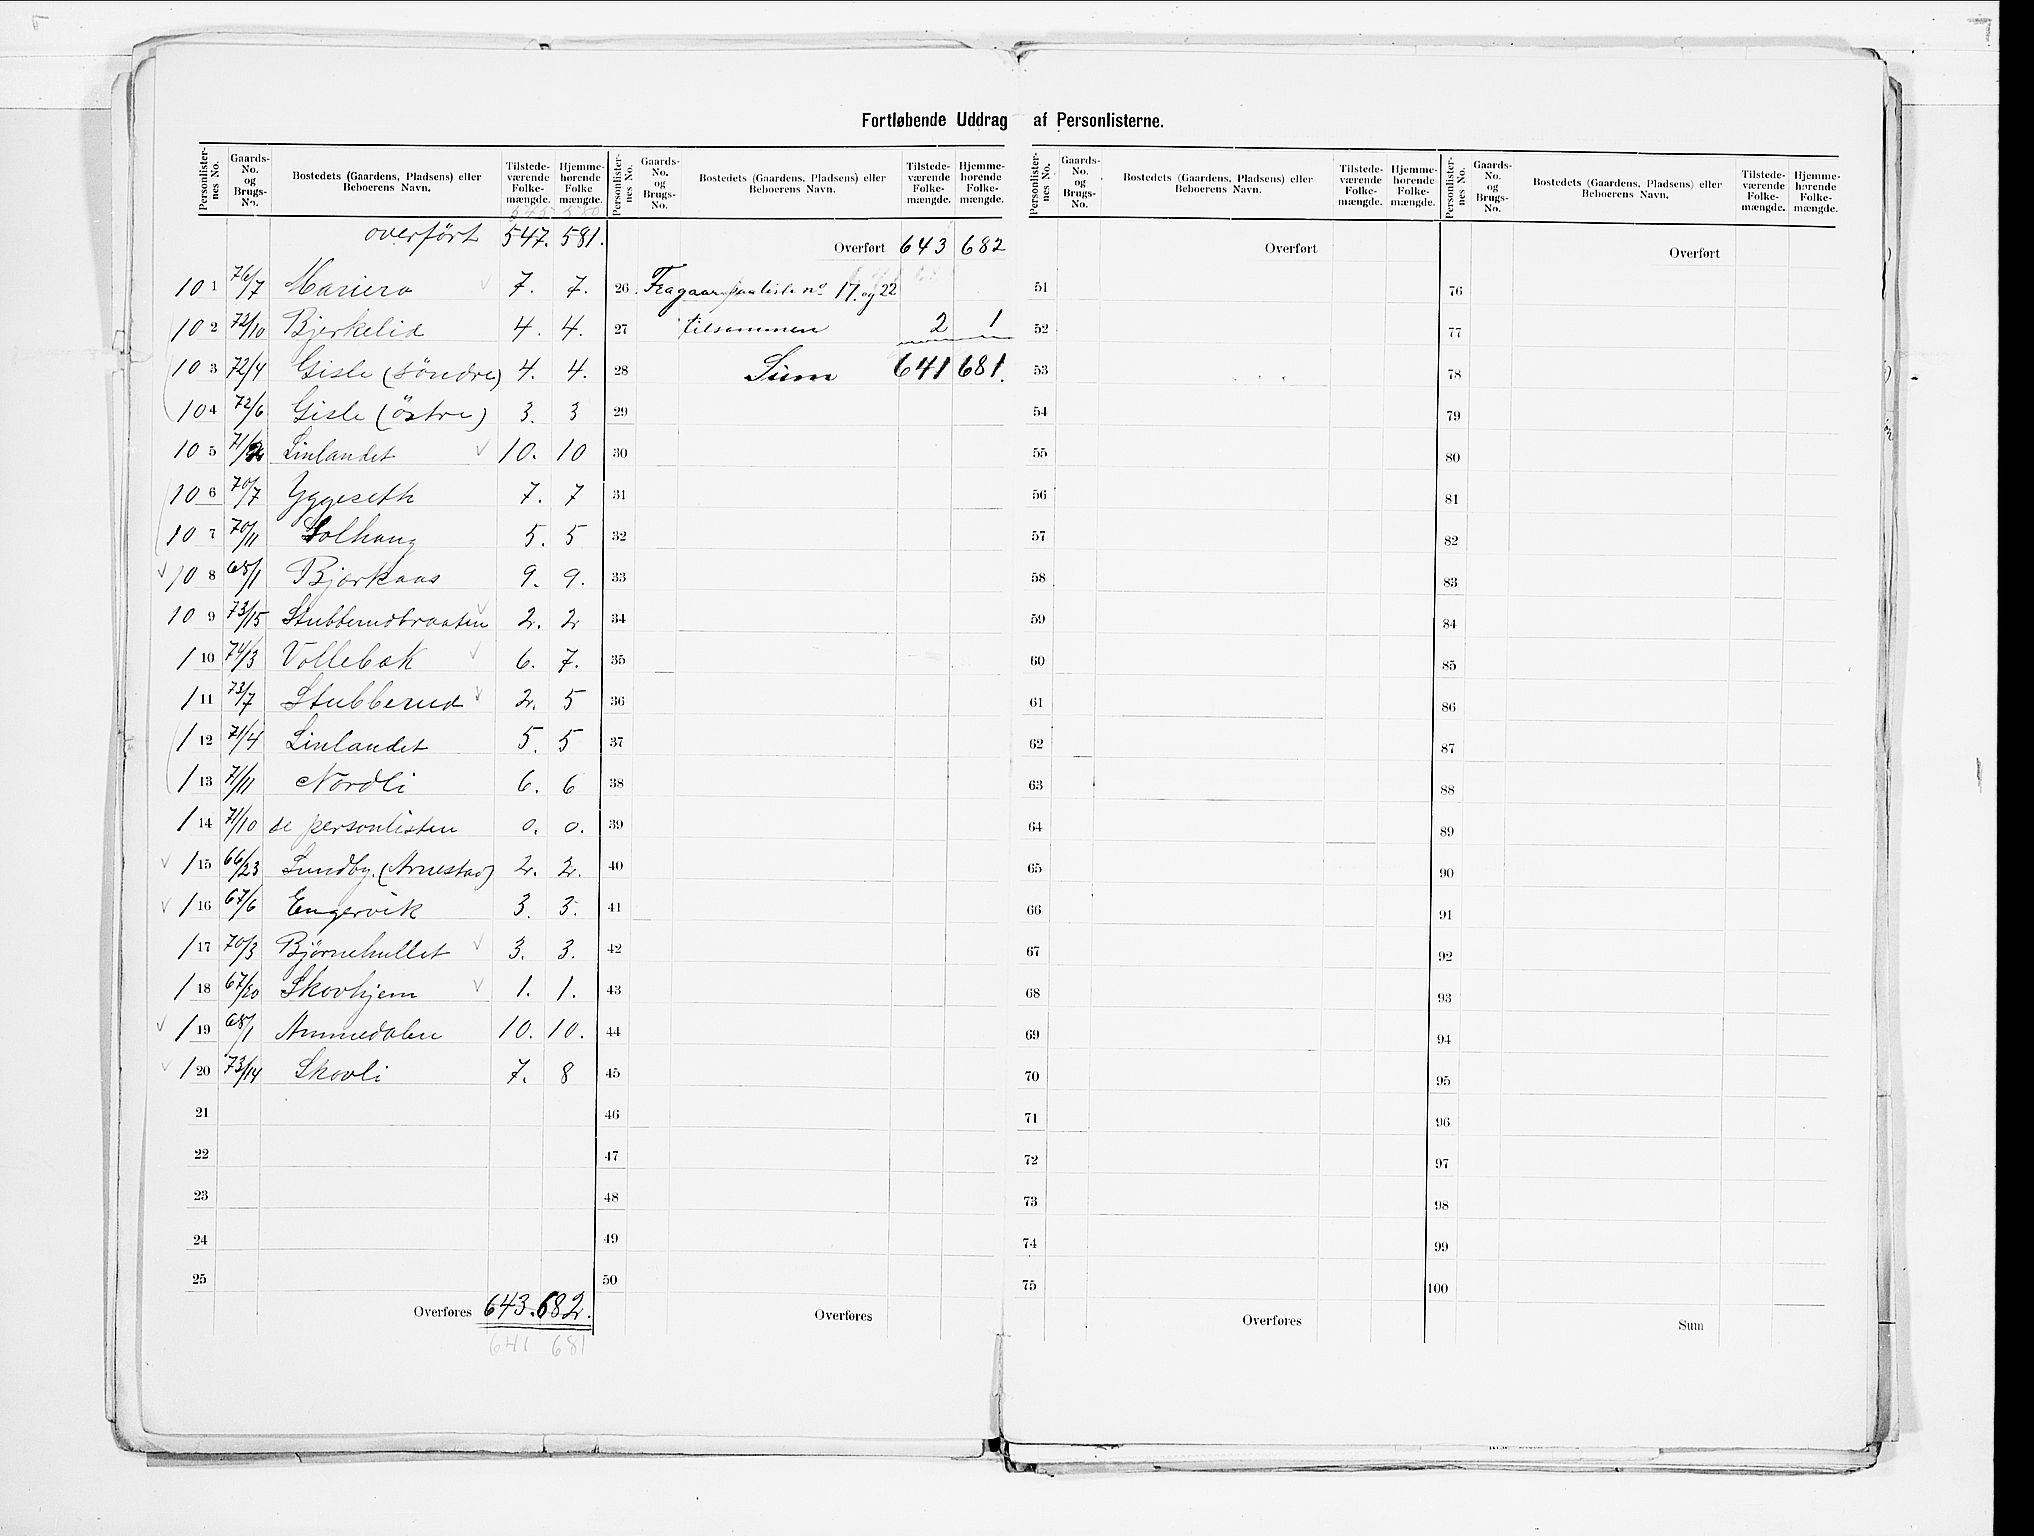 Fortløbende Uddrag af Personlisterne.
Personlisternes No. Gaards-No. og Brugs-No. Bostedets (Gaardens, Pladsens) eller Beboerens Navn. Tilstedeværende Folkemængde. Hjemmehørende Folkemængde.
Personlisternes No. Gaards-No. og Brugs-No. Bostedets (Gaardens, Pladsens) eller Beboerens Navn. Tilstedeværende Folkemængde. Hjemmehørende Folkemængde.
Personlisternes No. Gaards-No. og Brugs-No. Bostedets (Gaardens, Pladsens) eller Beboerens Navn. Tilstedeværende Folkemængde. Hjemmehørende Folkemængde.
Personlisternes No. Gaards-No. og Brugs-No. Bostedets (Gaardens, Pladsens) eller Beboerens Navn. Tilstedeværende Folkemængde. Hjemmehørende Folkemængde.
545 580
overført 547. 581.
101 76/7 Mariero 7. 7.
102 72/10 Bjerkelid 4. 4.
103 72/4 Gisle (söndre) 4. 4.
104 72/6 Gisle (östre) 3. 3
105 Linlandet 10. 10
106 70/7 Yggeseth 7. 7
107 70/11 Solhaug 5. 5
108 68/1 Bjørkaas 9. 9.
109 73/15 Stubberudbraaten 2. 2
110 74/3 Vollebæk 6. 7.
111 73/7 Stubberud 2. 5
112 71/4 Linlandet 5. 5
113 71/11 Nordli 6. 6
114 71/10 se personlisten 0. 0.
115 66/23 Lundby. (Arnestad) 2. 2.
116 67/6 Engervik 3. 3.
117 70/3 Bjørnehullet 3. 3.
118 67/20 Skovhjem 1. 1.
119 68/1 Ammedalen 10. 10.
120 73/14 Skovli 7. 8
21
22
23
24
25
Overføres 643. 682.
641 681
Overført 643 682
26 Fragaar paa liste no 17. og 22
27 tilsammen 2 1
28 Sum 641 681.
29
30
31
32
33
34
35
36
37
38
39
40
41
42
43
44
45
46
47
48
49
50
Overføres
Overført
51
52
53
54
55
56
57
58
59
60
61
62
63
64
65
66
67
68
69
70
71
72
73
74
75
Overføres
Overført
76
77
78
79
80
81
82
83
84
85
86
87
88
89
90
91
92
93
94
95
96
97
98
99
100
Sum